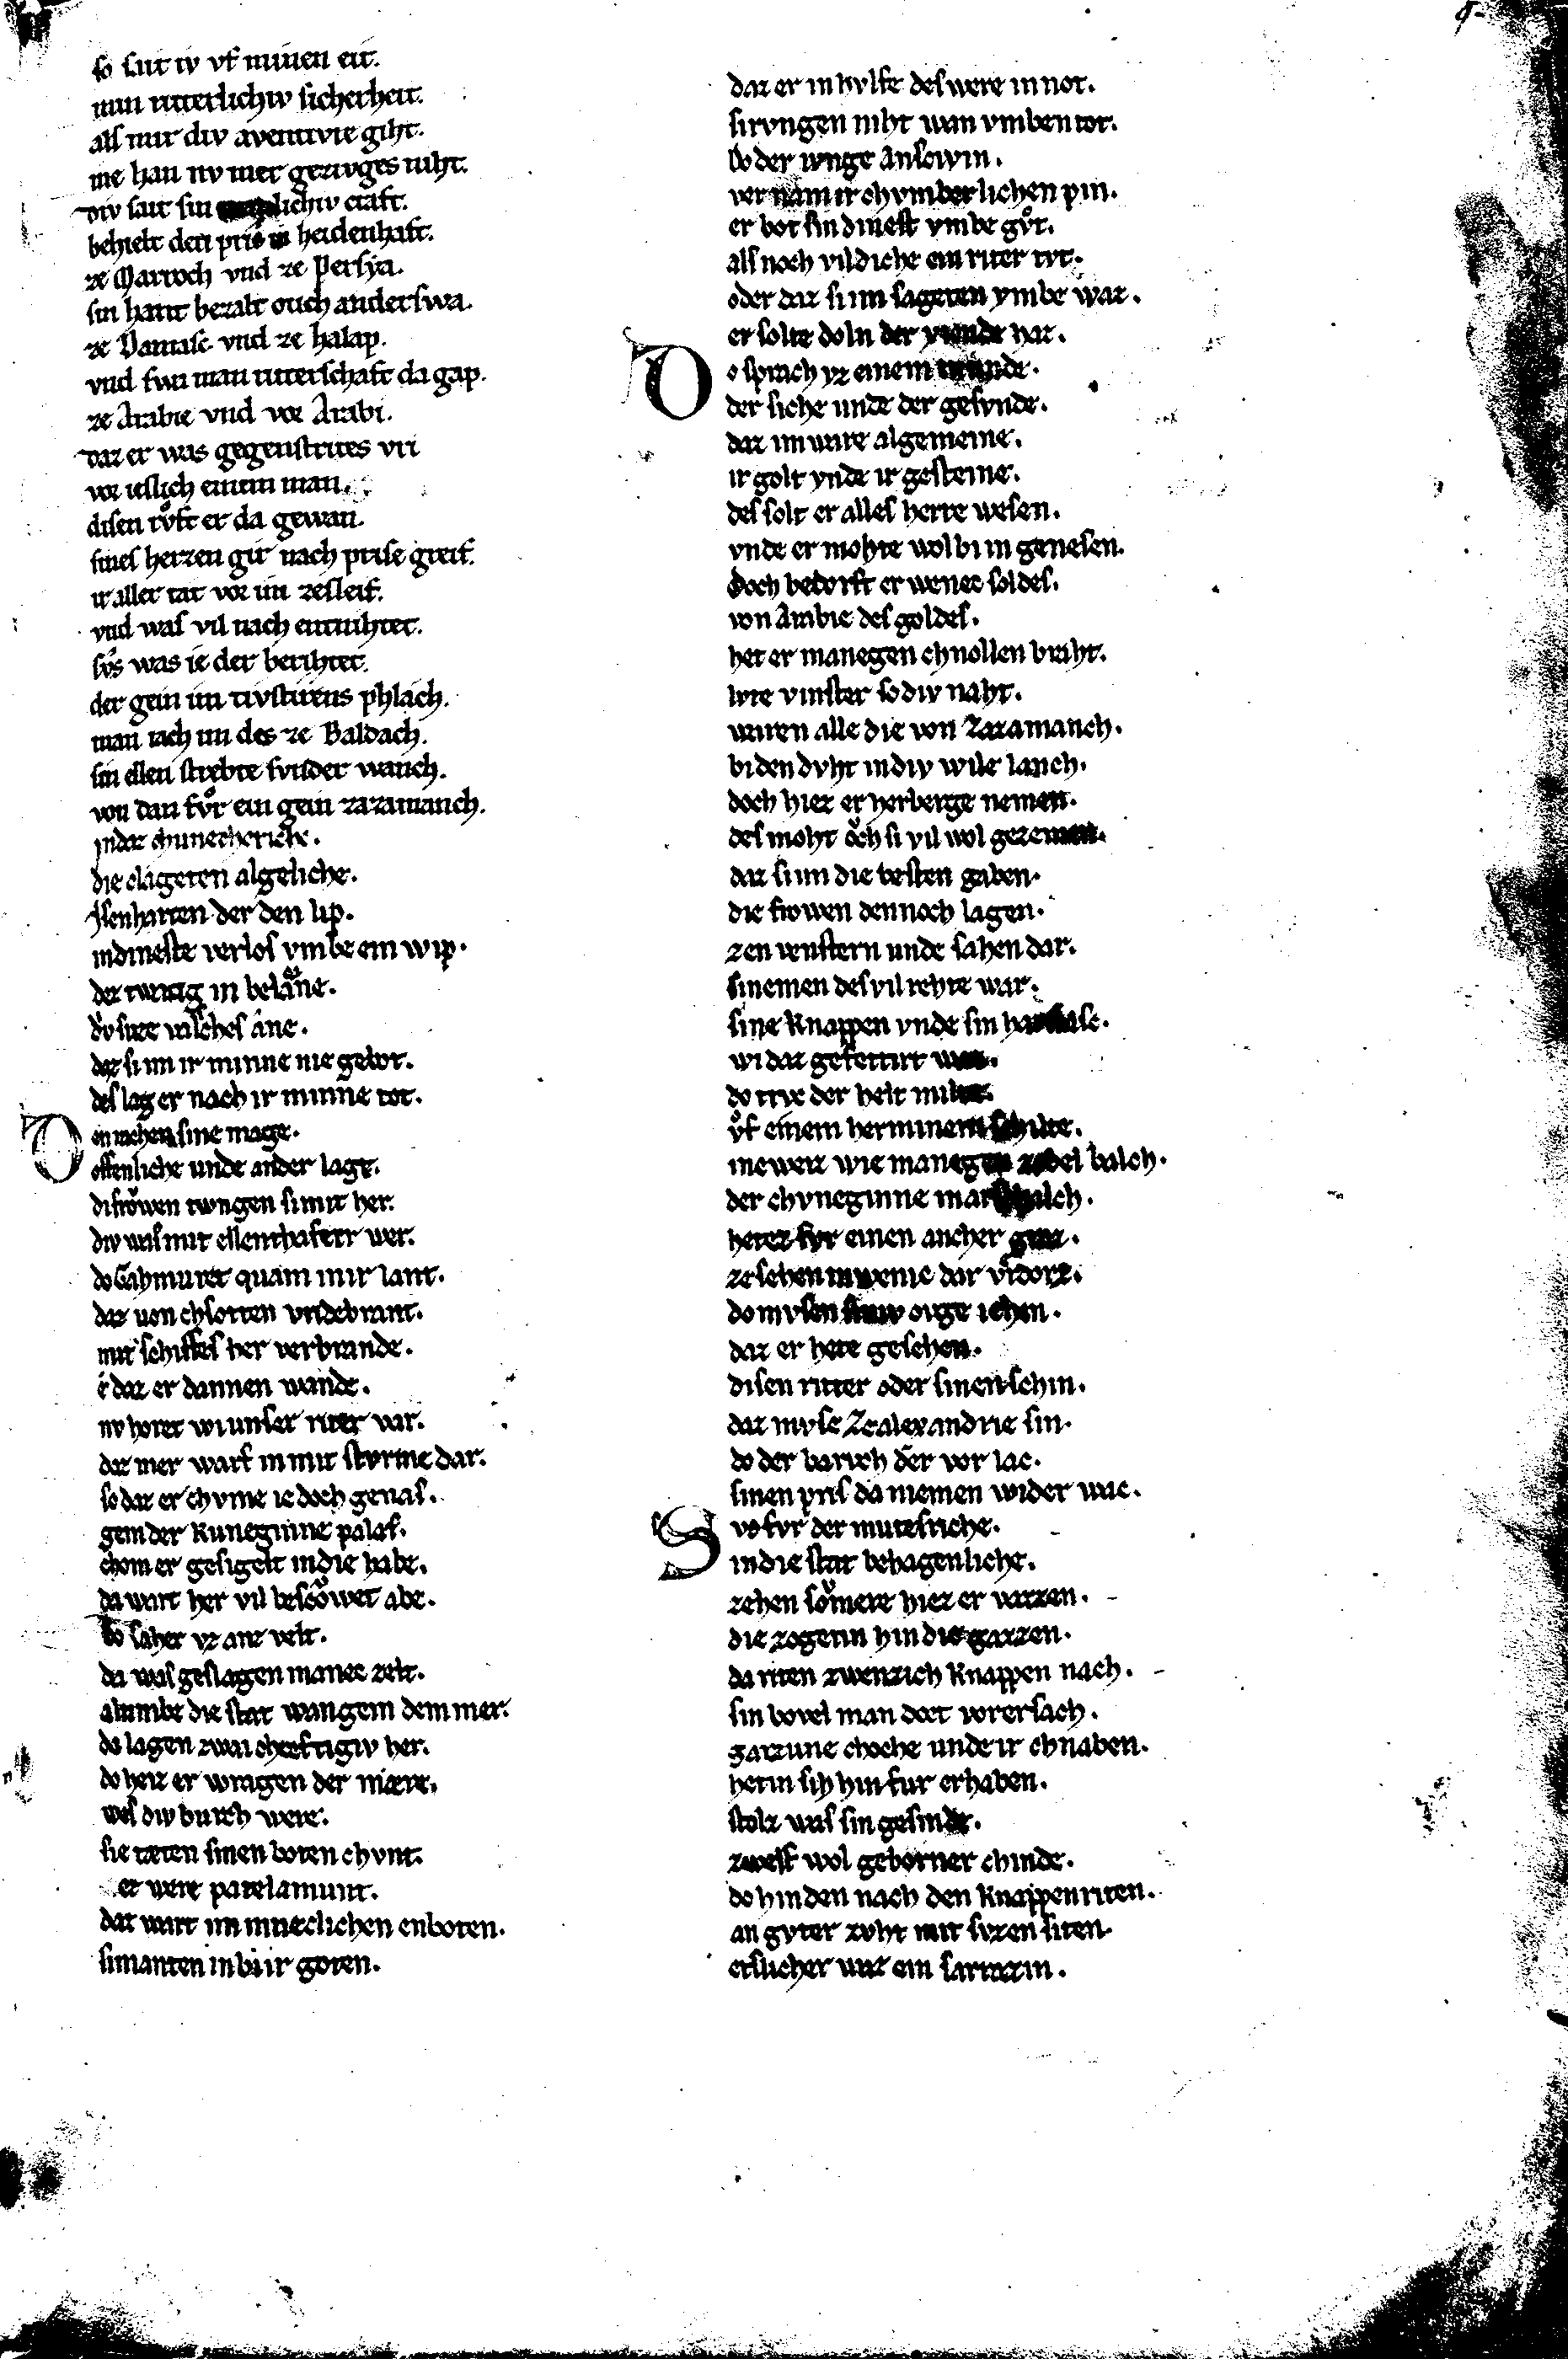 so sait iv vf minen eit.
min ritterlichiv sicherheit.
als mir div aventivre giht.
ine han nv mer gezivges niht.
div sait sin lichiv craft.
behielt den pris in heidenhaft.
ze Marroch vnd ze Persya.
sin hant bezalt ouch anderswa.
ze Damasc vnd ze halap.
vnd swa man ritterschaft da gap.
ze Arabie vnd vor Arabi.
daz er was gegenstrites vri
vor ieslich einem man.
disen rv̊ft er da gewan.
sines herzen gir nach prise greif.
ir aller tat vor im zesleif.
vnd was vil nach entnihtet.
sv̊s was ie der berihtet.
der gein im tivstirens phlach.
man iach im des ze Baldach.
sin ellen strebte svnder wanch.
von dan fv̊r ein gein zazamanch.
in daz chunecheriche.
die clageten algeliche.
Isenharten der den lip.
in dineste verlos vmbe ein wip.
dez twang in belacane.
div suze valsches ane.
daz si im ir minne nie gebot.
des lag er nach ir minne tot.
Den rachen sine mage.
offenliche unde ander lage.
di frowen twngen si mit her.
div was mit ellenthafter wer.
do Gahmuret quam inir lant.
daz uon chsotten vridebrant.
mit schiffes her verbrande.
e daz er dannen wande.
nv horet wi unser riter var.
daz mer warf in mit stvrme dar.
so daz er chvme ie doch genas.
gein der kuneginne palas.
chom er gesigelt in die habe.
da wart her vil bescowet abe.
Do saher vz anz velt.
da was geslagen manec zelt.
alumbe die stat wan gein dem mer.
do lagen zwai chreftigiv her.
do hiez er vragen der mære.
wes div burch were.
sie tæten sinen boten chvnt.
ez were patelamunt.
daz wart im mineclichen enboten.
si manten in bi ir goten.
daz er in hvlfe des were in not.
si rvngen niht wan vmben tot.
Do der ivnge Ansovin.
ver nam ir chvmberlichen pin.
er bot sin dinest vmbe gv̊t.
als noch vil diche ein riter tvt.
oder daz si im sageten vmbe waz.
er solte doln der viende haz.
Do sprach vz einem munde.
der siche unde der gesvnde.
daz im wære algemeine.
ir golt vnde ir gesteine.
des solt er alles herre wesen.
vnde er mohte wol bi in genesen.
doch bedorft er wenec soldes.
von Arabie des goldes.
het er manegen chnollen braht.
livte vinster so div naht.
waren alle die von Zazamanch.
bi den dvht in div wile lanch.
doch hiez er herberge nemen.
des moht ōch si vil wol gezemen.
daz si im die besten gaben.
die frowen dennoch lagen.
zen venstern unde sahen dar.
si nemen des vil rehte war.
sine knappen vnde sin harnasc.
wi daz gefeitirt was.
do trvc der helt milte.
v̊f einem herminem schilte.
ine weiz wie manegen zobel balch.
der chvneginne marschalch.
hetez fvr einen ancher groz.
ze sehen in wenic dar vrdorz.
do mvsen siniv ovge iehen.
daz er hete gesehen.
disen ritter oder sinen schin.
daz mvse ze alexandrie sin.
do der barvch der vor lac.
sinen pris da niemen wider wac.
Svo fvr der mutesriche.
in die stat behagenliche.
zehen sōmere hiez er vazzen.
die zogenn hin die gazzen.
da riten zwenzich knappen nach.
sin bovel man dort vor ersach.
garzune choche unde ir chnaben.
hetin sih hin fur erhaben.
stolz was sin gesinde.
zwelf wol geborner chinde.
do hinden nach den knappen riten.
an gvter zvht mit svzen siten.
etslicher waz ein sarrazin.